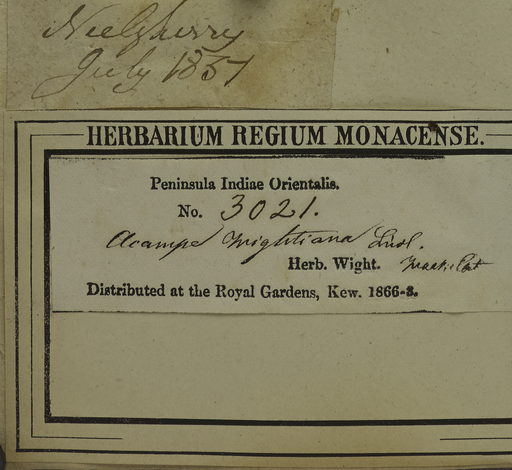 Neelgherry
July 1837
HERBARIUM REGIUM MONACENSE.
Peninsula Indiae Orientalis.
No. 3021.
Acampe Wightiana Lindl.
Herb. Wight.
Distributed at the Royal Gardens, Kew. 1866-8.